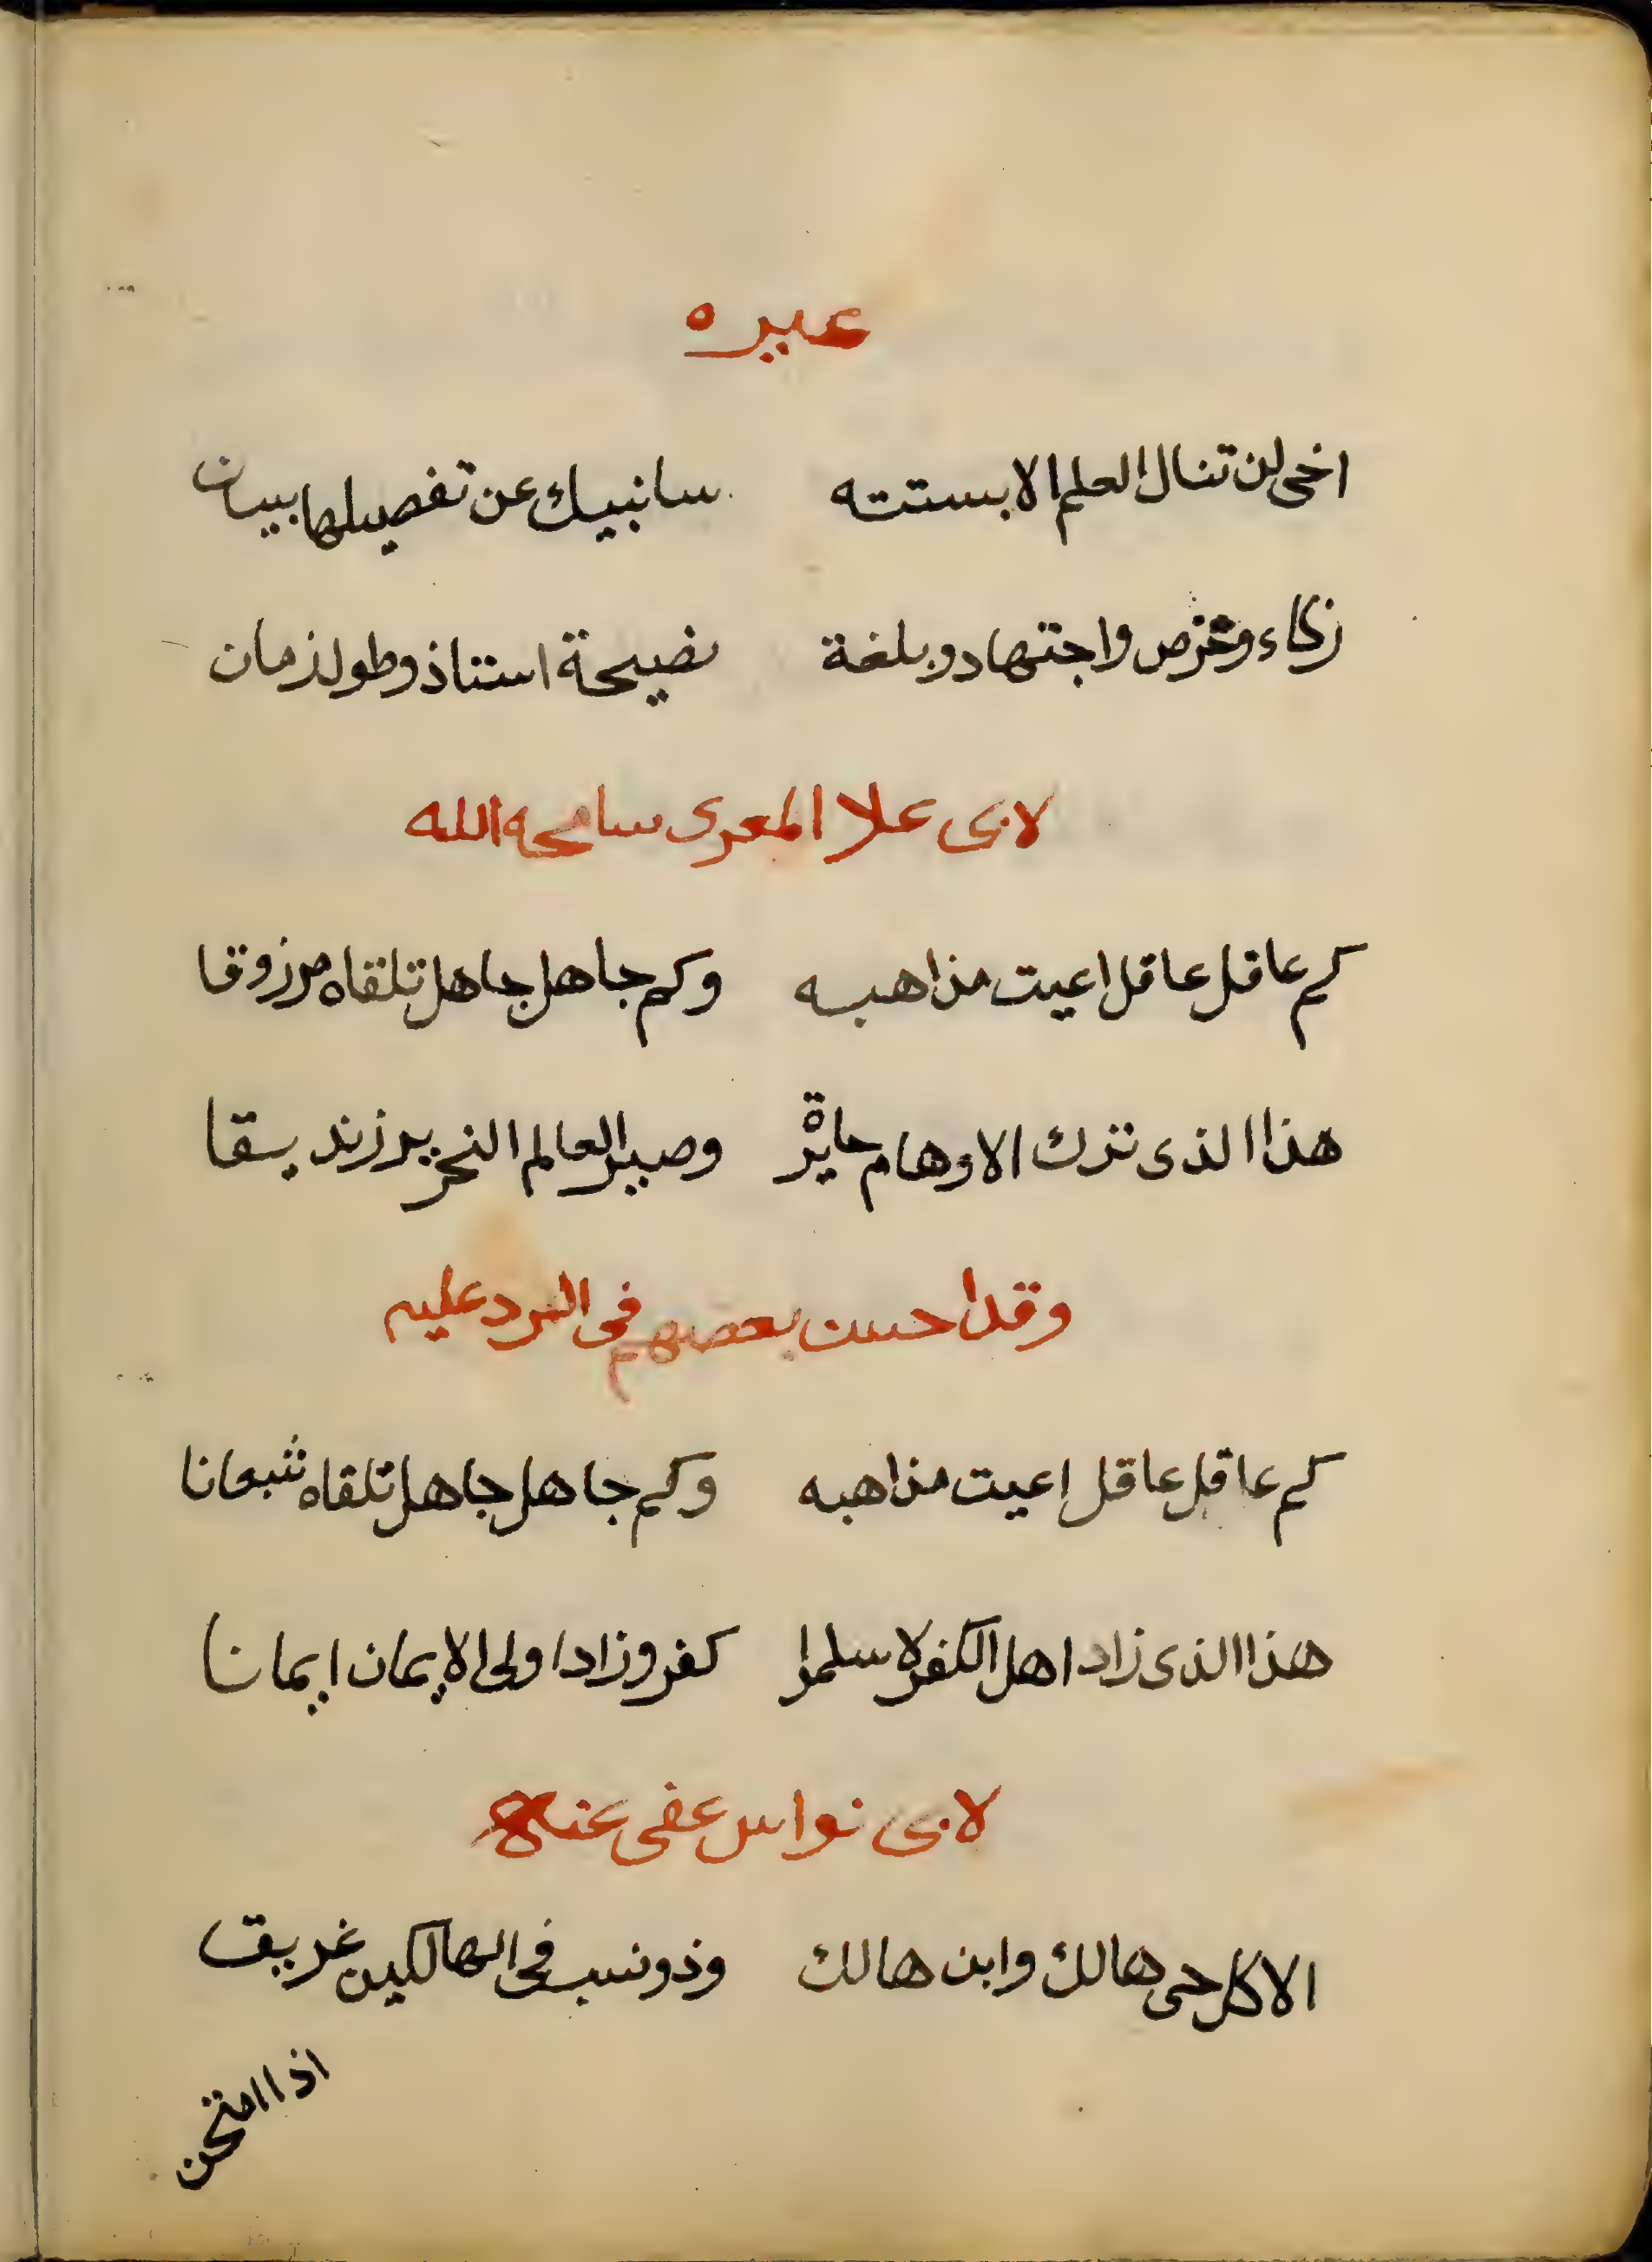 عبره
اخى لن تنال العلم الا بستته سانبيك عن تفصيلها ببيان
زكاء وحرص واجتهاد وبلغة نصيحة استاذ وطول زمان
لابى علا المعرى سامحه الله
كم عاقل عاقل اعيت مذاهبه وكم جاهل جاهل تلقاه مرزوقا
هذا الذى ترك الاوهام حايرة وصير العالم النحرير زنديقا
وقد احسن بعضهم فى الرد عليه
كم عاقل عاقل اعيت مذاهبه وكم جاهل جاهل تلقاه شبعانا
هذا الذى زاد اهل الكفر لا سلموا كفر وزاد اولى الايمان ايمانا
لابى نواس عفى عنه
الا كل حى هالك وابن هالك وذو نسب فى الهالكين غريق
اذا امتحن